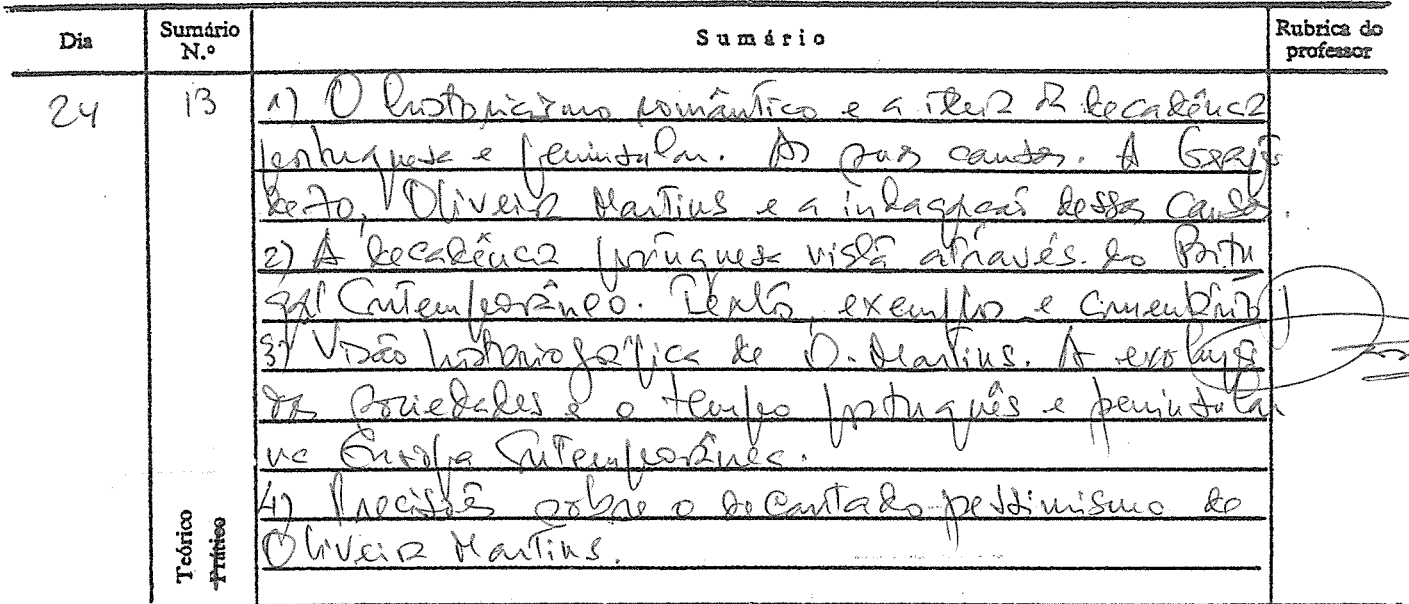 Dia Sumário N.º Sumário Rubrica do professor
24 13 1) O historicismo romântico e a ideia de decadência
portuguesa e peninsular. As suas causas. A Geração
de 70, Oliveira Martins e a indagação dessas causas.
2) A decadência portuguesa vista através do Portu
gal Contemporâneo. Textos, exemplos e comentários
3) Visão historiográfica de O. Martins. A evolução
das sociedades e o tempo português e peninsular
na Europa Contemporânea.
4) Precisões sobre o decantado pessimismo de
Oliveira Martins.
Teórico
Prático